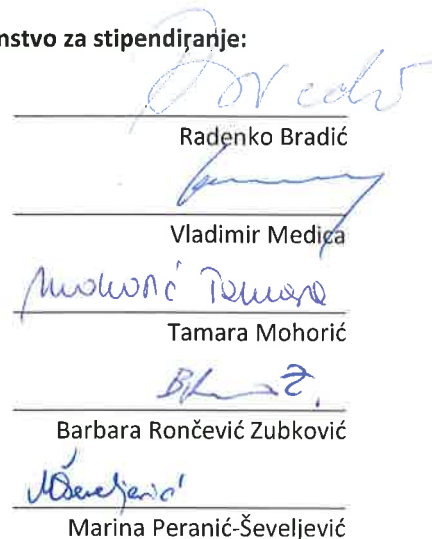 nstvo za stipendiranje:
Radenko Bradić
Vladimir Medica
Mohorić Tamara
Tamara Mohorić
Barbara Rončević Zubković
MŠeveljević
Marina Peranić-Ševeljević